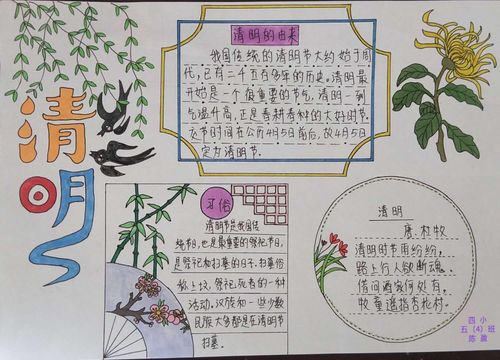 清明
清明的由来
我国传统的清明节大约始于周
代,已有二千五百多年的历史。清明最
开始是一个很重要的节气,清明一到
气温升高,正是春耕春种的大好时节。
这节时间在公历4月5日前后,故4月5日
定为清明节。
习俗
清明节是我国传
统节日,也是最重要的祭祀节日,
是祭祀和扫墓的日子。扫墓俗
称上坟,祭祀死者的一种
活动。汉族和一些少数
民族大多都是在清明节
扫墓。
清明
唐.杜牧
清明时节雨纷纷,
路上行人欲断魂。
借问酒家何处有,
牧童遥指杏花村。
四小
五(4)班
陈盈